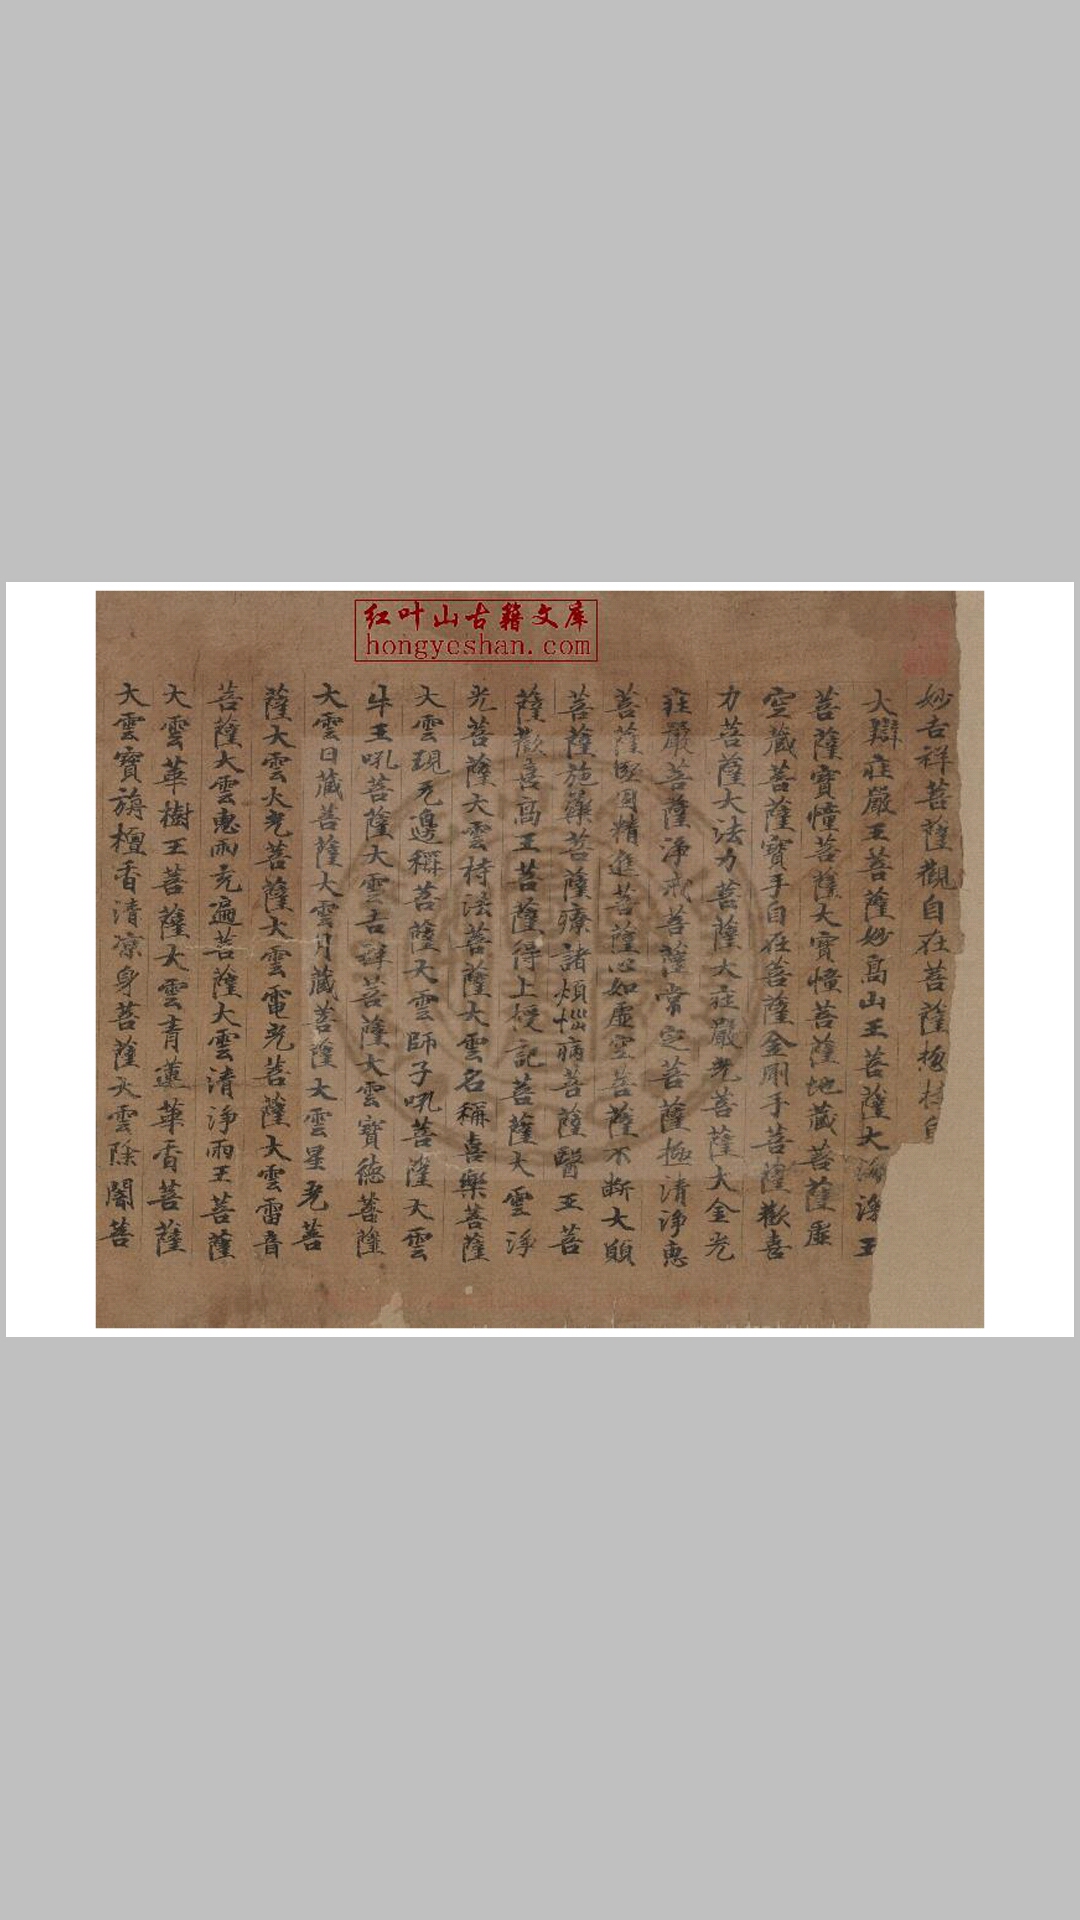 红叶山古籍文库
hongyeshan.com
妙吉祥菩薩觀自在菩薩惣持自
大辯莊嚴王菩薩妙髙山王菩薩大海深王
菩薩寶幢菩薩大寶幢菩薩地藏菩薩虛
空藏菩薩寶手自在菩薩金剛手菩薩歡喜
力菩薩大法力菩薩大莊嚴光菩薩大金光
莊嚴菩薩淨戒菩薩常定菩薩極清淨惠
菩薩堅固精進菩薩心如虛空菩薩不断大願
菩薩施藥菩薩療諸煩惱病菩薩醫王菩
薩歡喜髙王菩薩得上授記菩薩大雲淨
光菩薩大雲持法菩薩大雲名稱喜樂菩薩
大雲現无邊稱菩薩大雲師子吼菩薩大雲
牛王吼菩薩大雲吉祥菩薩大雲寶德菩薩
大雲日藏菩薩大雲月藏菩薩大雲星光菩
薩大雲火光菩薩大雲電光菩薩大雲雷音
菩薩大雲惠雨充遍菩薩大雲清淨雨王菩薩
大雲華樹王菩薩大雲青蓮華香菩薩
大雲寶旃檀香清凉身菩薩大雲除闇菩